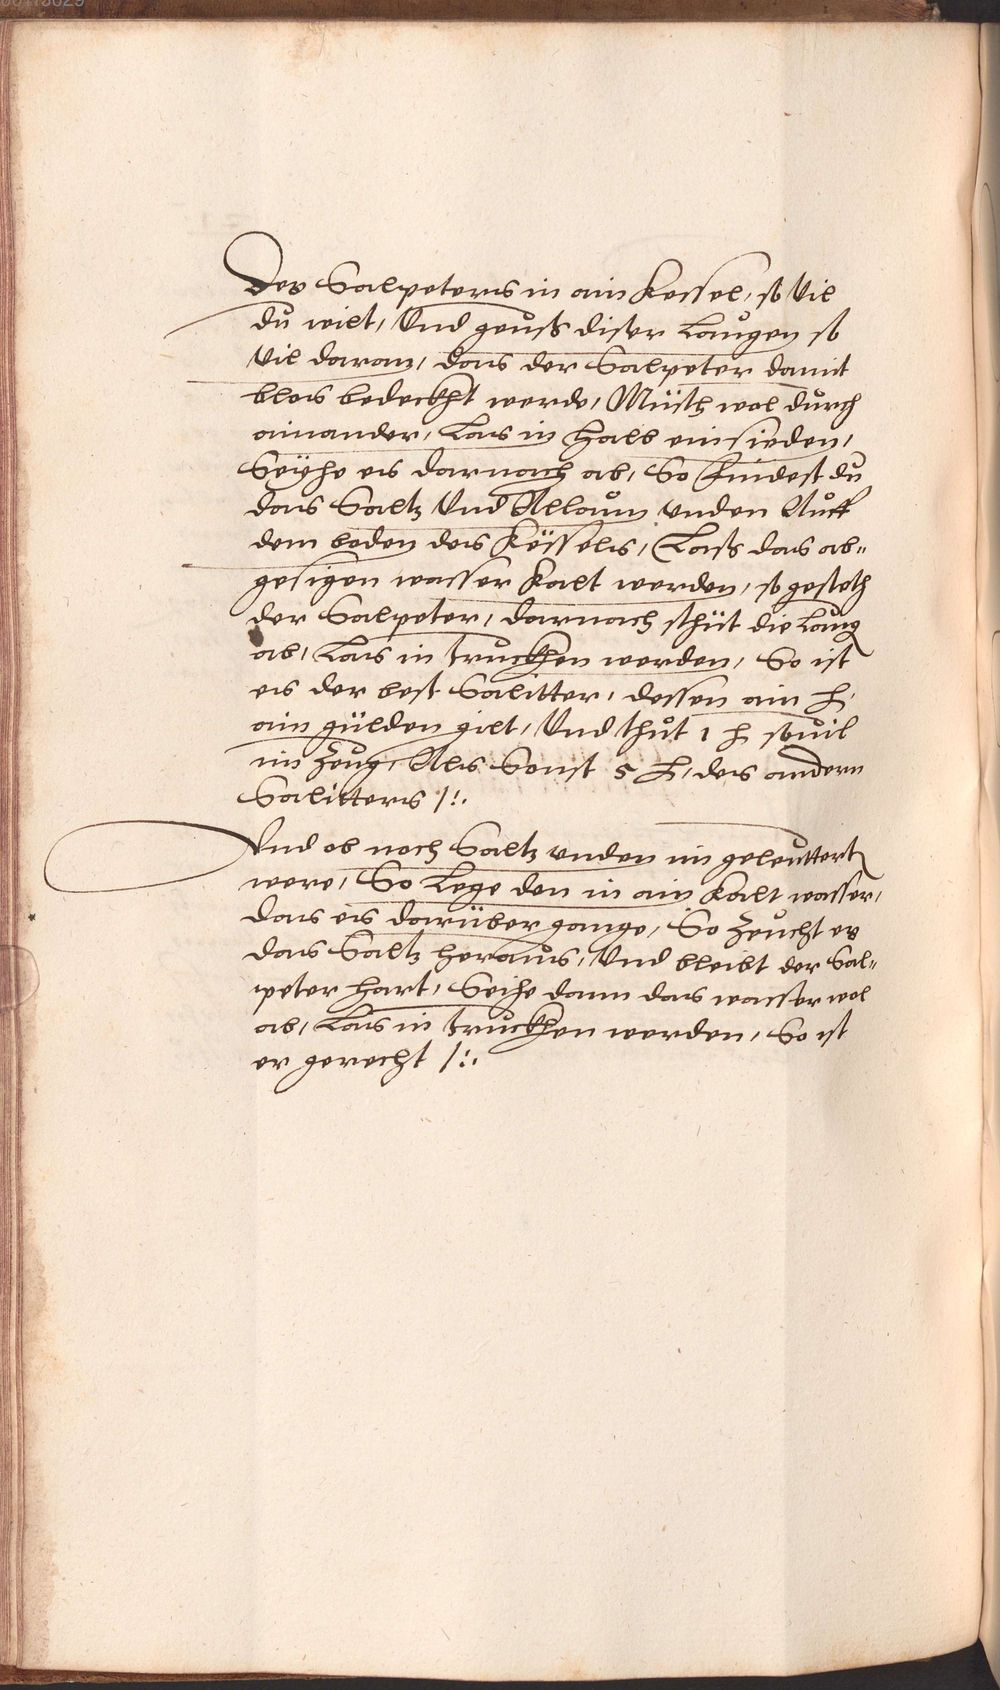 Des Salpeters in ain Kessel, so vil
du wilt, Vnd geuß diser Laugen so
vil daran, das der Salpeter damit
blos bedeckht werde, Müsch wol durch
ainander, Las in halb einsieden,
Seyhe es darnach ab, So findest du
das Saltz Vnd Allaun vnden Auff
dem boden des Kessels, Laß das ab=
gesigen wasser kalt werden, so gesteth
der Salpeter, darnach schüt die Laug
ab, Las in truckhen werden, So ist
es der best Salitter, dessen ain ℔
ain gülden gilt, Vnd thut 1 ℔ souil
im Zeug, Als Sonst 5 ℔, des andern
Salitters /:.
Vnd ob noch Saltz vnden im geleuttert
were, So Lege den in ain kalt wasser,
das es darüber gange, So Zeucht es
das Saltz heraus, Vnd bleibt der Sal=
peter hart, Seihe dann das wasser wol
ab, Las in truckhen werden, So ist
er gerecht /:.